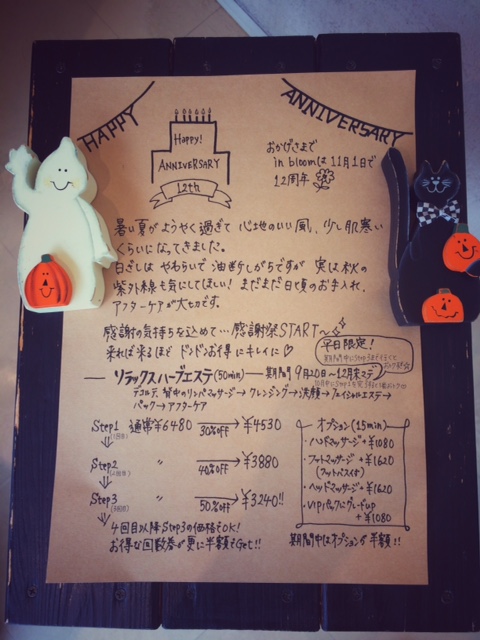 HAPPY
ANNIVERSARY
Happy!
ANNIVERSARY
12th
おかげさまで
in bloomは11月1日で
12周年
暑い夏がようやく過ぎて 心地のいい風、少し肌寒い
くらいになってきました。
日ざしは やわらいで 油断しがちですが 実は秋の
紫外線も気にしてほしい! まだまだ日頃のお手入れ、
アフターケアが大切です。
感謝の気持ちを込めて…感謝祭START〜
来れば来るほど ドンドンお得にキレイに♡
平日限定!
リラックスハーブエステ (50min)
期間 9月20日〜12月末マデ
デコルテ、背中のリンパマッサージ→クレンジング→洗顔→フェイシャルエステ→
パック→アフターケア
Step1 通常¥6480 30%OFF → ¥4530
(1回目)
Step2 〃 40%OFF → ¥3880
(2回目)
Step3 〃 50%OFF → ¥3240!!
(3回目)
4回目以降Step3の価格でOK!
お得な回数券が更に半額でGet!!
オプション (15min)
・ハンドマッサージ +¥1080
・フットマッサージ +¥1620
(フットバス付)
・ヘッドマッサージ +¥1620
・VIPパックにグレードup
+¥1080
期間中はオプションが半額!!